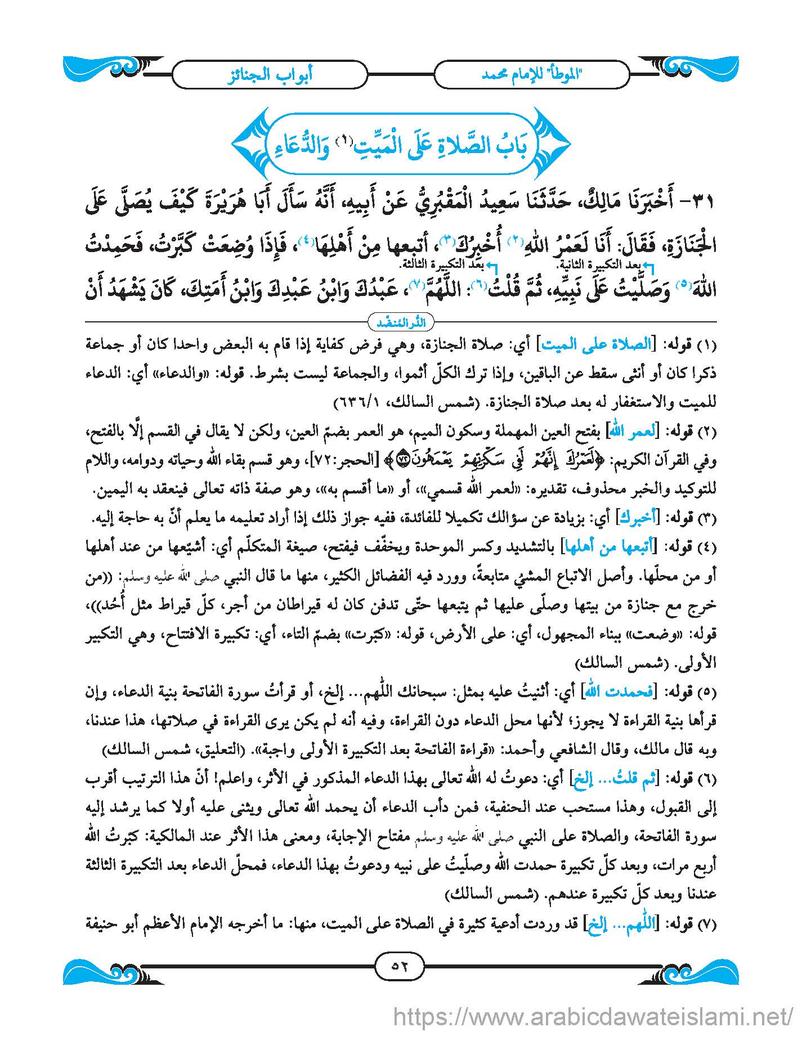 "الموطأ" للإمام محمد
أبواب الجنائز
بَابُ الصَّلَاةِ عَلَى الْمَيِّتِ(١) وَالدُّعَاءِ
٣١- أَخْبَرَنَا مَالِكٌ، حَدَّثَنَا سَعِيدُ الْمَقْبُرِيُّ عَنْ أَبِيهِ، أَنَّهُ سَأَلَ أَبَا هُرَيْرَةَ كَيْفَ يُصَلَّى عَلَى
الْجَنَازَةِ، فَقَالَ: أَنَا لَعَمْرُ اللهِ(٢) أُخْبِرُكَ(٣)، أتبعها مِنْ أَهْلِهَا(٤)، فَإِذَا وُضِعَتْ كَبَّرْتُ، فَحَمِدْتُ
بعد التكبيرة الثانية. بعد التكبيرة الثالثة.
اللهَ(٥) وَصَلَّيْتُ عَلَى نَبِيِّهِ، ثُمَّ قُلْتُ(٦): اللّٰهُمَّ(٧)، عَبْدُكَ وَابْنُ عَبْدِكَ وَابْنُ أَمَتِكَ، كَانَ يَشْهَدُ أَنْ
الدُّر المُنضَّد
(١) قوله: [الصلاة على الميت] أي: صلاة الجنازة، وهي فرض كفاية إذا قام به البعض واحدا كان أو جماعة
ذكرا كان أو أنثى سقط عن الباقين، وإذا ترك الكلّ أثموا، والجماعة ليست بشرط. قوله: «والدعاء» أي: الدعاء
للميت والاستغفار له بعد صلاة الجنازة. (شمس السالك، ٦٣٦/١)
(٢) قوله: [لعمر الله] بفتح العين المهملة وسكون الميم، هو العمر بضمّ العين، ولكن لا يقال في القسم إلَّا بالفتح،
وفي القرآن الكريم: ﴿لَعَمْرُكَ إِنَّهُمْ لَفِي سَكْرَتِهِمْ يَعْمَهُونَ۝٧٢﴾ [الحجر:٧٢]، وهو قسم بقاء الله وحياته ودوامه، واللام
للتوكيد والخبر محذوف، تقديره: «لعمر الله قسمي»، أو «ما أقسم به»، وهو صفة ذاته تعالى فينعقد به اليمين.
(٣) قوله: [أخبرك] أي: بزيادة عن سؤالك تكميلا للفائدة، ففيه جواز ذلك إذا أراد تعليمه ما يعلم أنّ به حاجة إليه.
(٤) قوله: [أتبعها من أهلها] بالتشديد وكسر الموحدة ويخفّف فيفتح، صيغة المتكلّم أي: أشيّعها من عند أهلها
أو من محلّها. وأصل الاتباع المشيُ متابعةً، وورد فيه الفضائل الكثير، منها ما قال النبي صلى الله عليه وسلم: ((من
خرج مع جنازة من بيتها وصلّى عليها ثم يتبعها حتّى تدفن كان له قيراطان من أجر، كلّ قيراط مثل أُحُد))،
قوله: «وضعت» ببناء المجهول، أي: على الأرض، قوله: «كبّرت» بضمّ التاء، أي: تكبيرة الافتتاح، وهي التكبير
الأولى. (شمس السالك)
(٥) قوله: [فحمدت الله] أي: أثنيتُ عليه بمثل: سبحانك اللّٰهم... إلخ، أو قرأتُ سورة الفاتحة بنية الدعاء، وإن
قرأها بنية القراءة لا يجوز؛ لأنها محل الدعاء دون القراءة، وفيه أنه لم يكن يرى القراءة في صلاتها، هذا عندنا،
وبه قال مالك، وقال الشافعي وأحمد: «قراءة الفاتحة بعد التكبيرة الأولى واجبة». (التعليق، شمس السالك)
(٦) قوله: [ثم قلتُ... إلخ] أي: دعوتُ له الله تعالى بهذا الدعاء المذكور في الأثر، واعلم! أنّ هذا الترتيب أقرب
إلى القبول، وهذا مستحب عند الحنفية، فمن دأب الدعاء أن يحمد الله تعالى ويثنى عليه أولا كما يرشد إليه
سورة الفاتحة، والصلاة على النبي صلى الله عليه وسلم مفتاح الإجابة، ومعنى هذا الأثر عند المالكية: كبّرتُ الله
أربع مرات، وبعد كلّ تكبيرة حمدت الله وصلّيتُ على نبيه ودعوتُ بهذا الدعاء، فمحلّ الدعاء بعد التكبيرة الثالثة
عندنا وبعد كلّ تكبيرة عندهم. (شمس السالك)
(٧) قوله: [اللّٰهم... إلخ] قد وردت أدعية كثيرة في الصلاة على الميت، منها: ما أخرجه الإمام الأعظم أبو حنيفة
٥٢
https://www.arabicdawateislami.net/